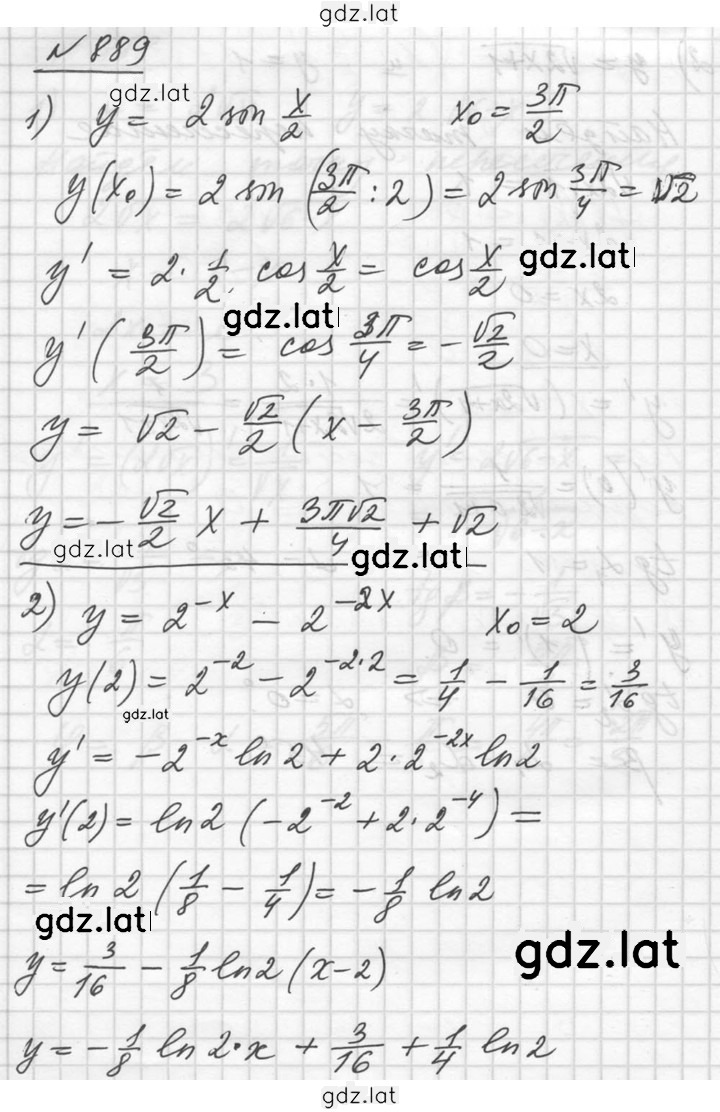 gdz.lat
№ 889
gdz.lat
1) y = 2 sin x/2 x₀ = 3π/2
y(x₀) = 2 sin (3π/2 : 2) = 2 sin 3π/4 = √2
y' = 2 · 1/2 cos x/2 = cos x/2 gdz.lat
gdz.lat
y' (3π/2) = cos 3π/4 = - √2/2
y = √2 - √2/2 (x - 3π/2)
y = - √2/2 x + 3π√2/4 + √2
gdz.lat gdz.lat
2) y = 2^{-x} - 2^{-2x} x₀ = 2
y(2) = 2^{-2} - 2^{-2·2} = 1/4 - 1/16 = 3/16
gdz.lat
y' = -2^{-x} ln 2 + 2 · 2^{-2x} ln 2
y'(2) = ln 2 (-2^{-2} + 2 · 2^{-4}) =
= ln 2 (1/8 - 1/4) = - 1/8 ln 2
gdz.lat
y = 3/16 - 1/8 ln 2 (x - 2) gdz.lat
y = - 1/8 ln 2 · x + 3/16 + 1/4 ln 2
gdz.lat